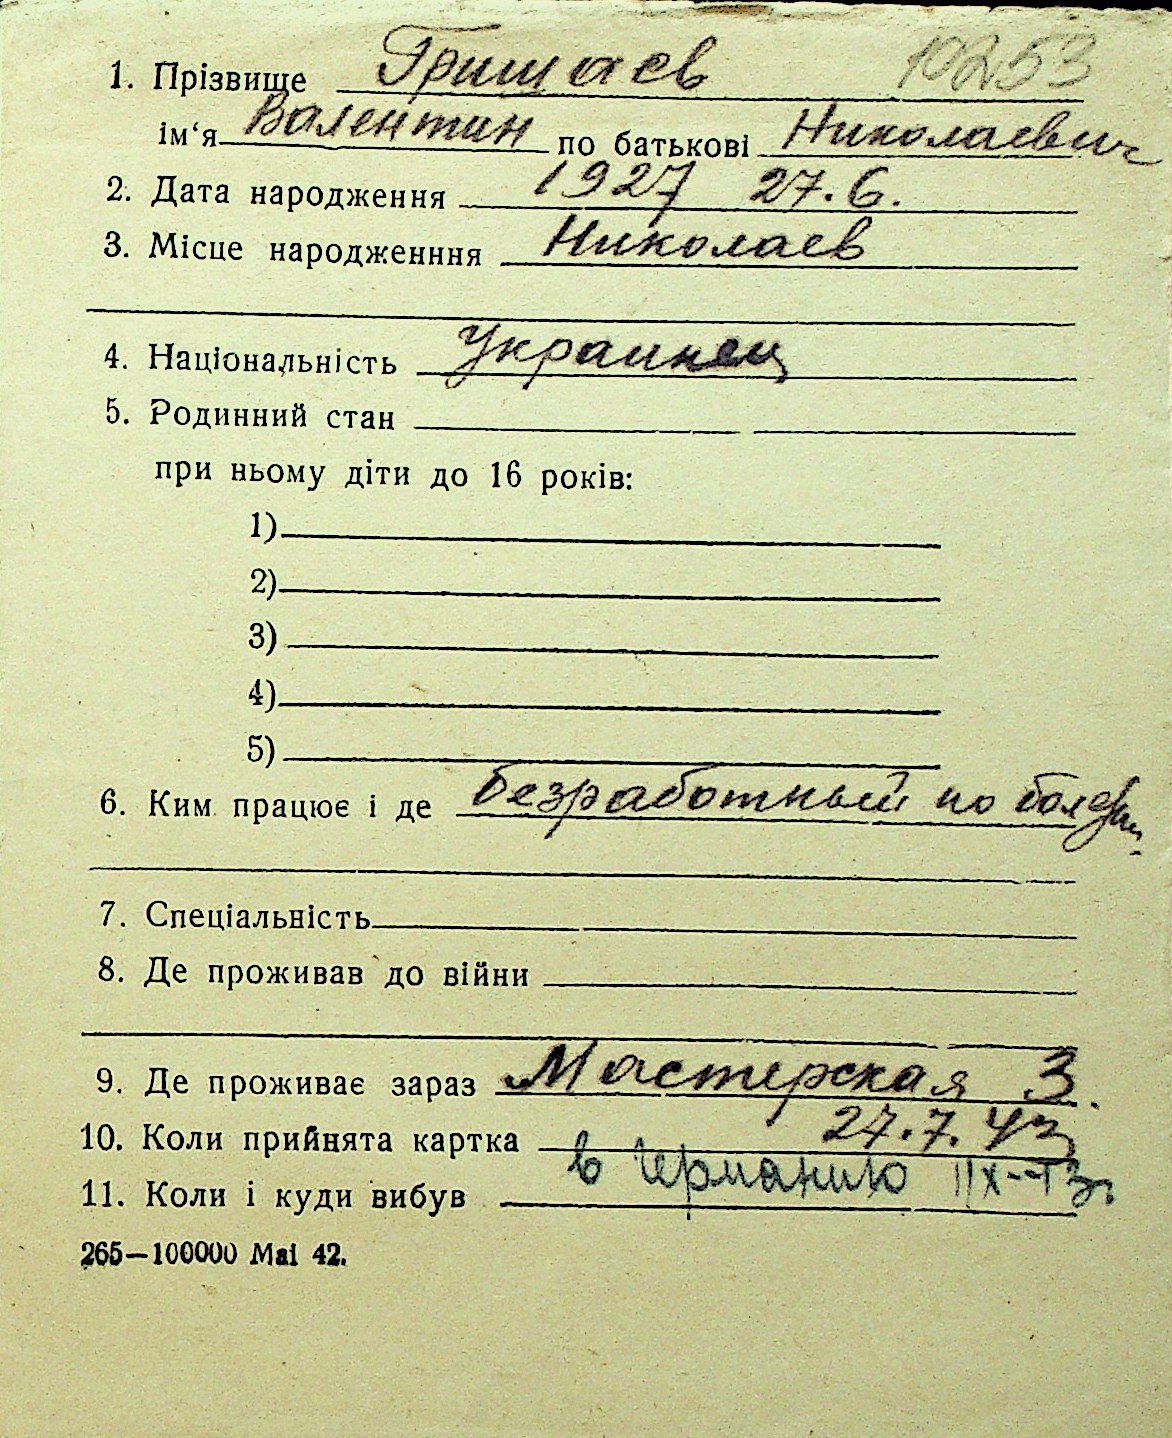 1. Прізвище Гришаев 10253
ім‘я Валентин по батькові Николаевич
2. Дата народження 1927 27.6.
3. Місце народженння Николаев
4. Національність Украинец
5. Родинний стан
при ньому діти до 16 років:
1)
2)
3)
4)
5)
6. Ким працює і де безработный по болезни
7. Спеціальність
8. Де проживав до війни
9. Де проживає зараз Мастерская 3.
10. Коли прийнята картка 27.7.43
11. Коли і куди вибув в Германию
265—100000 Mai 42.